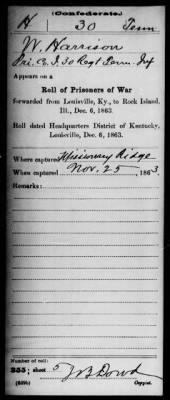 (Confederate.)
H 30 Tenn
W. Harrison
Pri. Co. I. 30 Regt Tenn. Inf
Appears on a
Roll of Prisoners of War
forwarded from Louisville, Ky., to Rock Island,
Ill., Dec. 6, 1863.
Roll dated Headquarters District of Kentucky,
Louisville, Dec. 6, 1863.
Where captured Missionary Ridge
When captured Nov. 25, 1863.
Remarks:
Number of roll:
255; sheet 5 J B Dowd
(639b) Copyist.